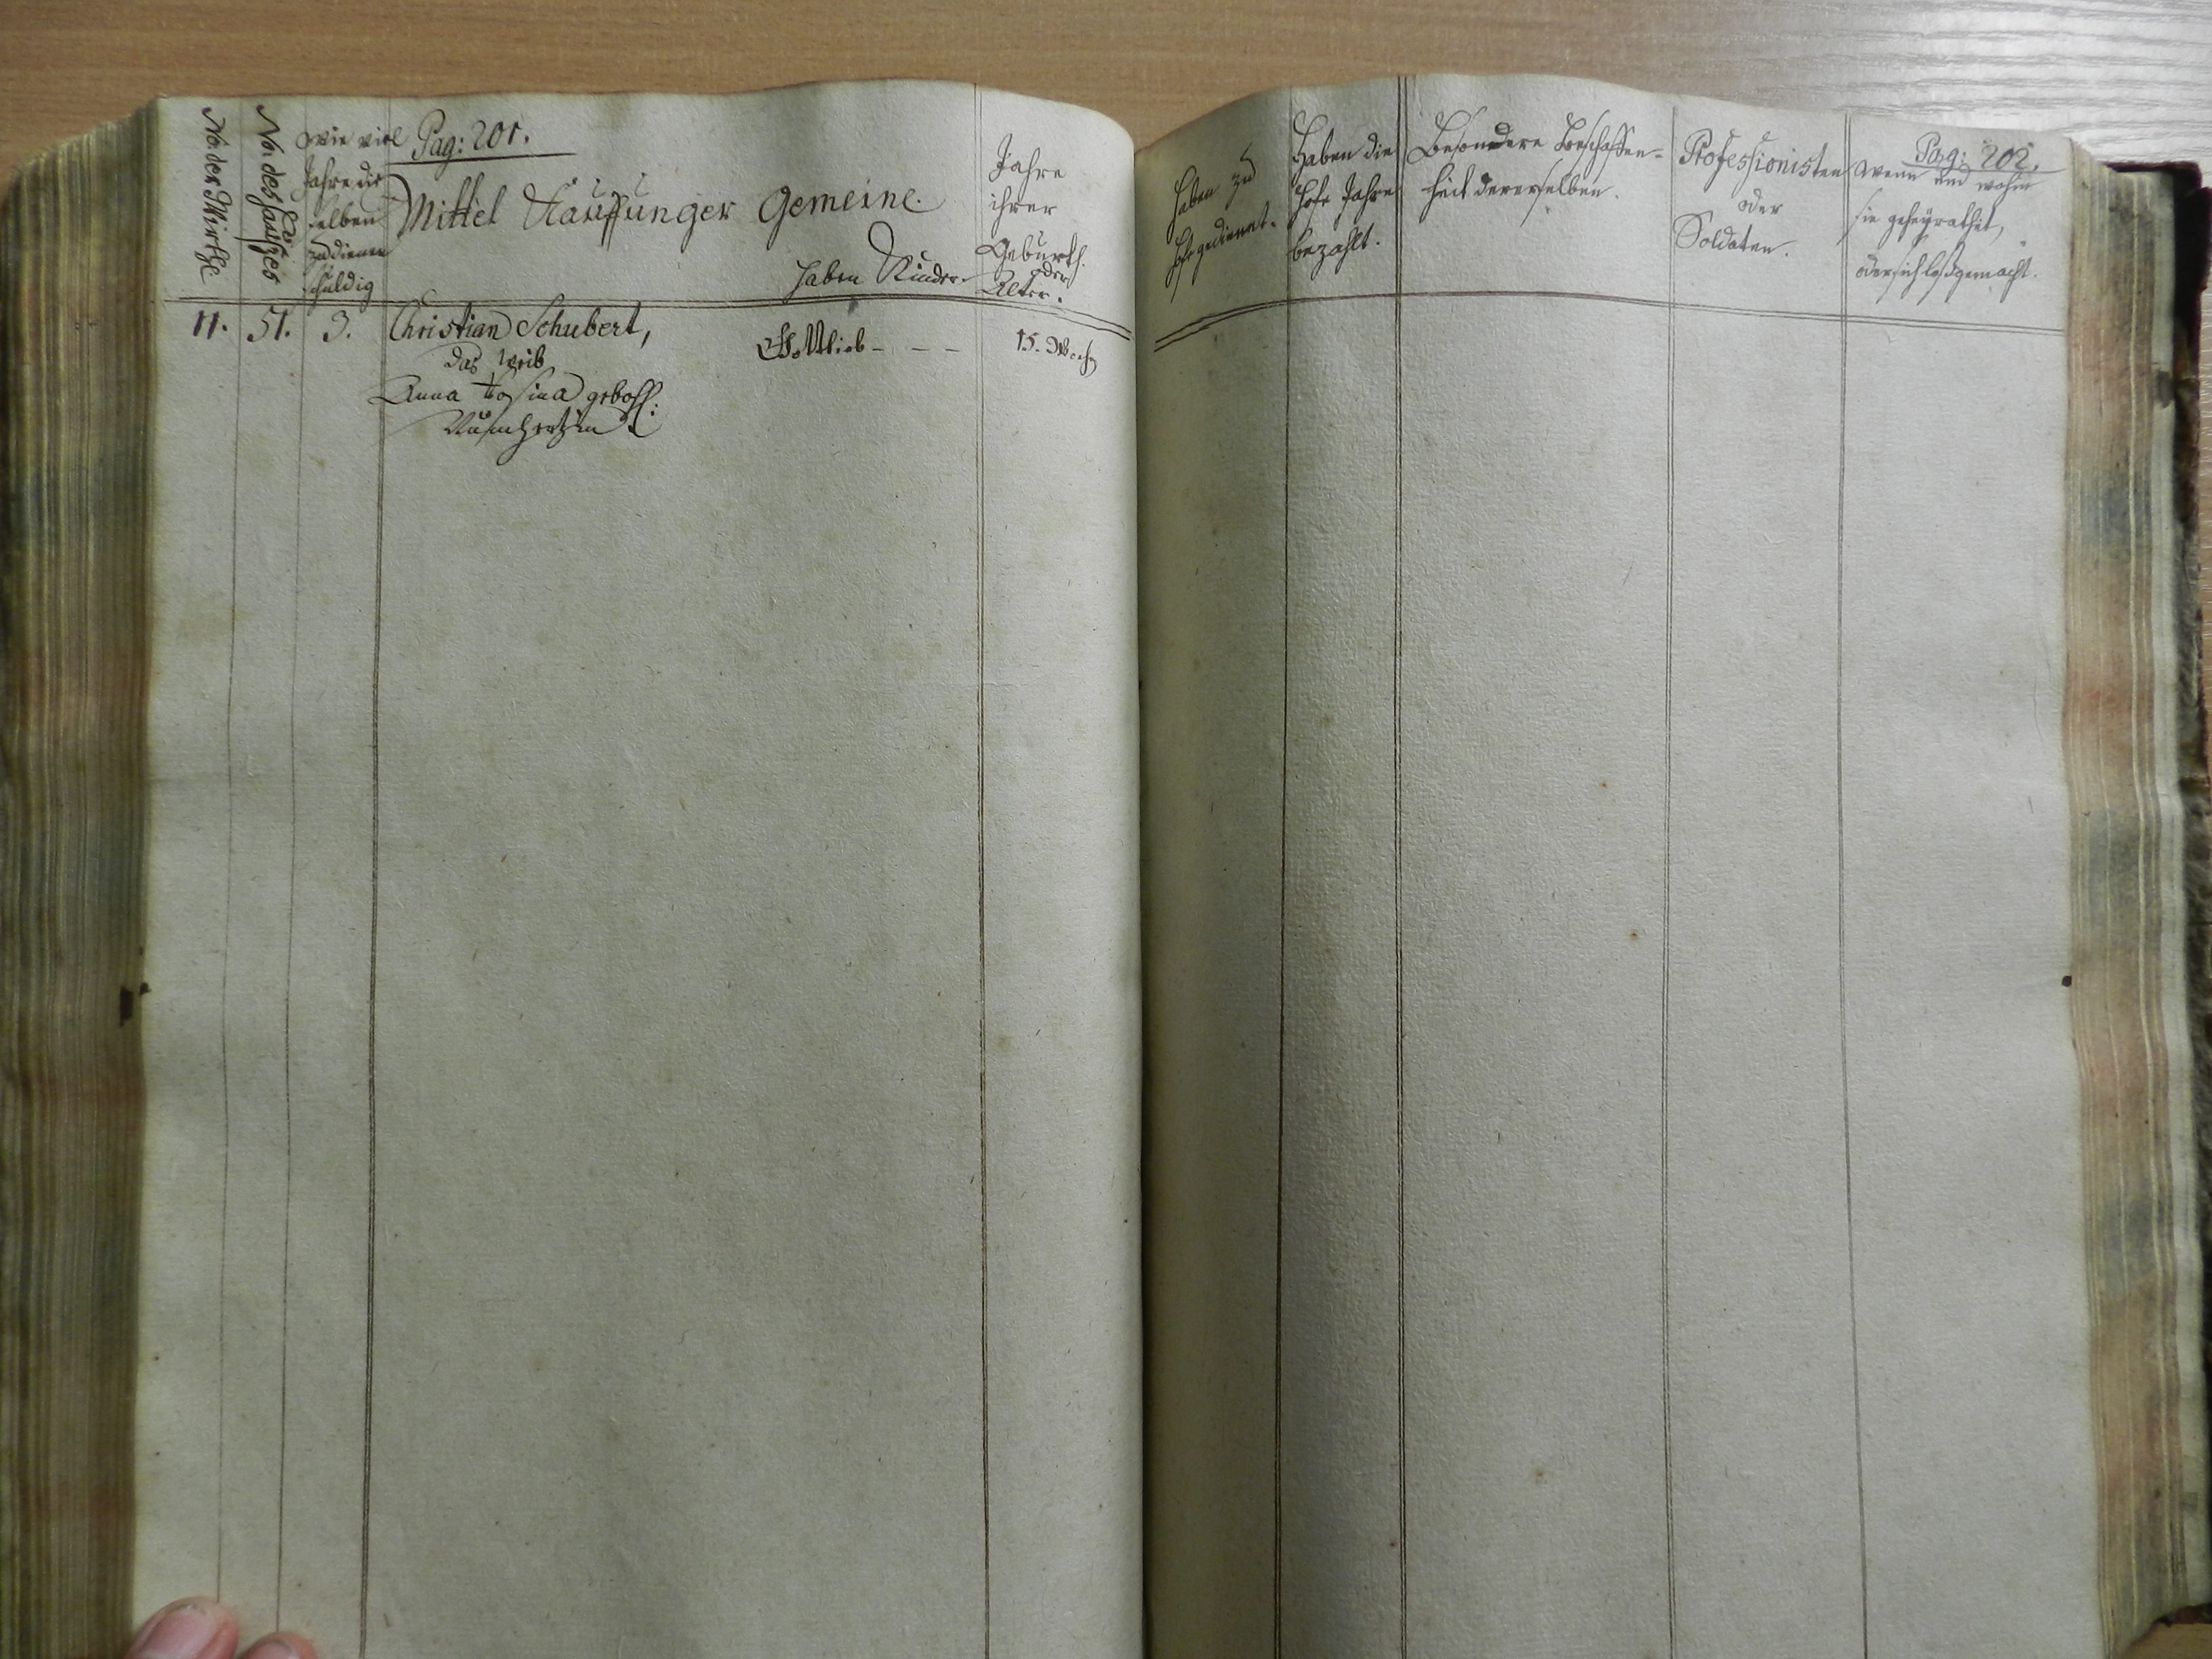 No. der Wirthe
No. des Hauses
wie viel
Jahre die
selben
zu dienen
schuldig
Pag: 201.
Mittel Kauffunger Gemeine.
haben Kinder.
Jahre
ihrer
Geburth.
oder
Alter.
11. 51. 3. Christian Schubert, Gottlieb - - - 15. Woch
das Weib
Anna Rosina gebohr:
Haben zu
Hofe gedienet.
Haben die
Hofe Jahre
bezahlt.
Besondere Beschaffen-
heit dererselben.
Professionisten
oder
Soldaten.
Pag: 202.
wenn und wohin
sie geheyrathet,
oder sich loßgemacht.